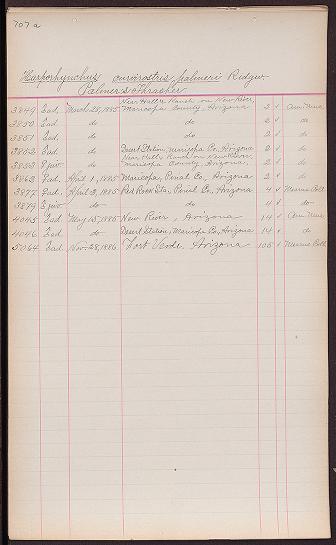 707a
Harporhynchus curvirostris palmeri Ridgw.
Palmer's Thrasher
3849 Zad. March 28, 1885 Near Hall's Ranch on New River, Maricopa County, Arizona 2 ✓ Am. Mus.
3850 Zad. do do 2 ✓ do
3851 Zad. do do 2 ✓ do
3852 Zad. do Desert Station, Maricopa Co., Arizona 2 ✓ do
3853 do Near Hall's Ranch on New River, Maricopa County, Arizona. 2 ✓ do
3863 April 1, 1885 Maricopa, Pinal Co., Arizona 2 ✓ do
3877 April 3, 1885 Red Rock Sta., Pinal Co., Arizona 4 ✓ Mearns Coll.
3879 do. do. 4 ✓ do
4045 Zad. May 15, 1885 New River, Arizona 14 ✓ Am. Mus.
4046 Zad. do Desert Station, Maricopa Co., Arizona 14 ✓ do
5064 Zad. Nov. 28, 1886 Fort Verde, Arizona 105 ✓ Mearns Coll.